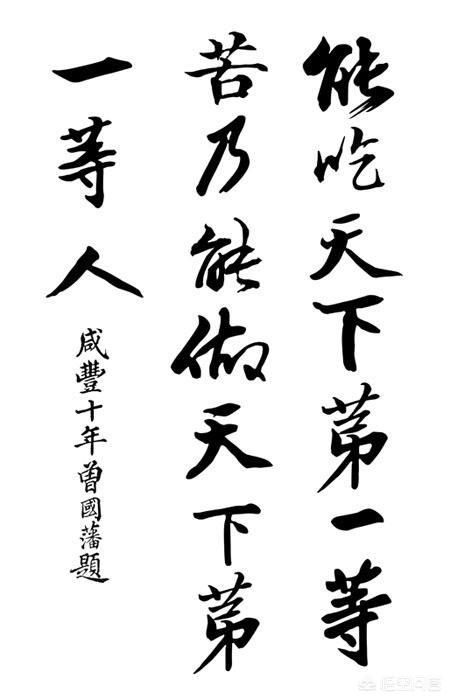 能吃天下第一等
苦乃能做天下第
一等人
咸豐十年曾國藩題
悟空问答